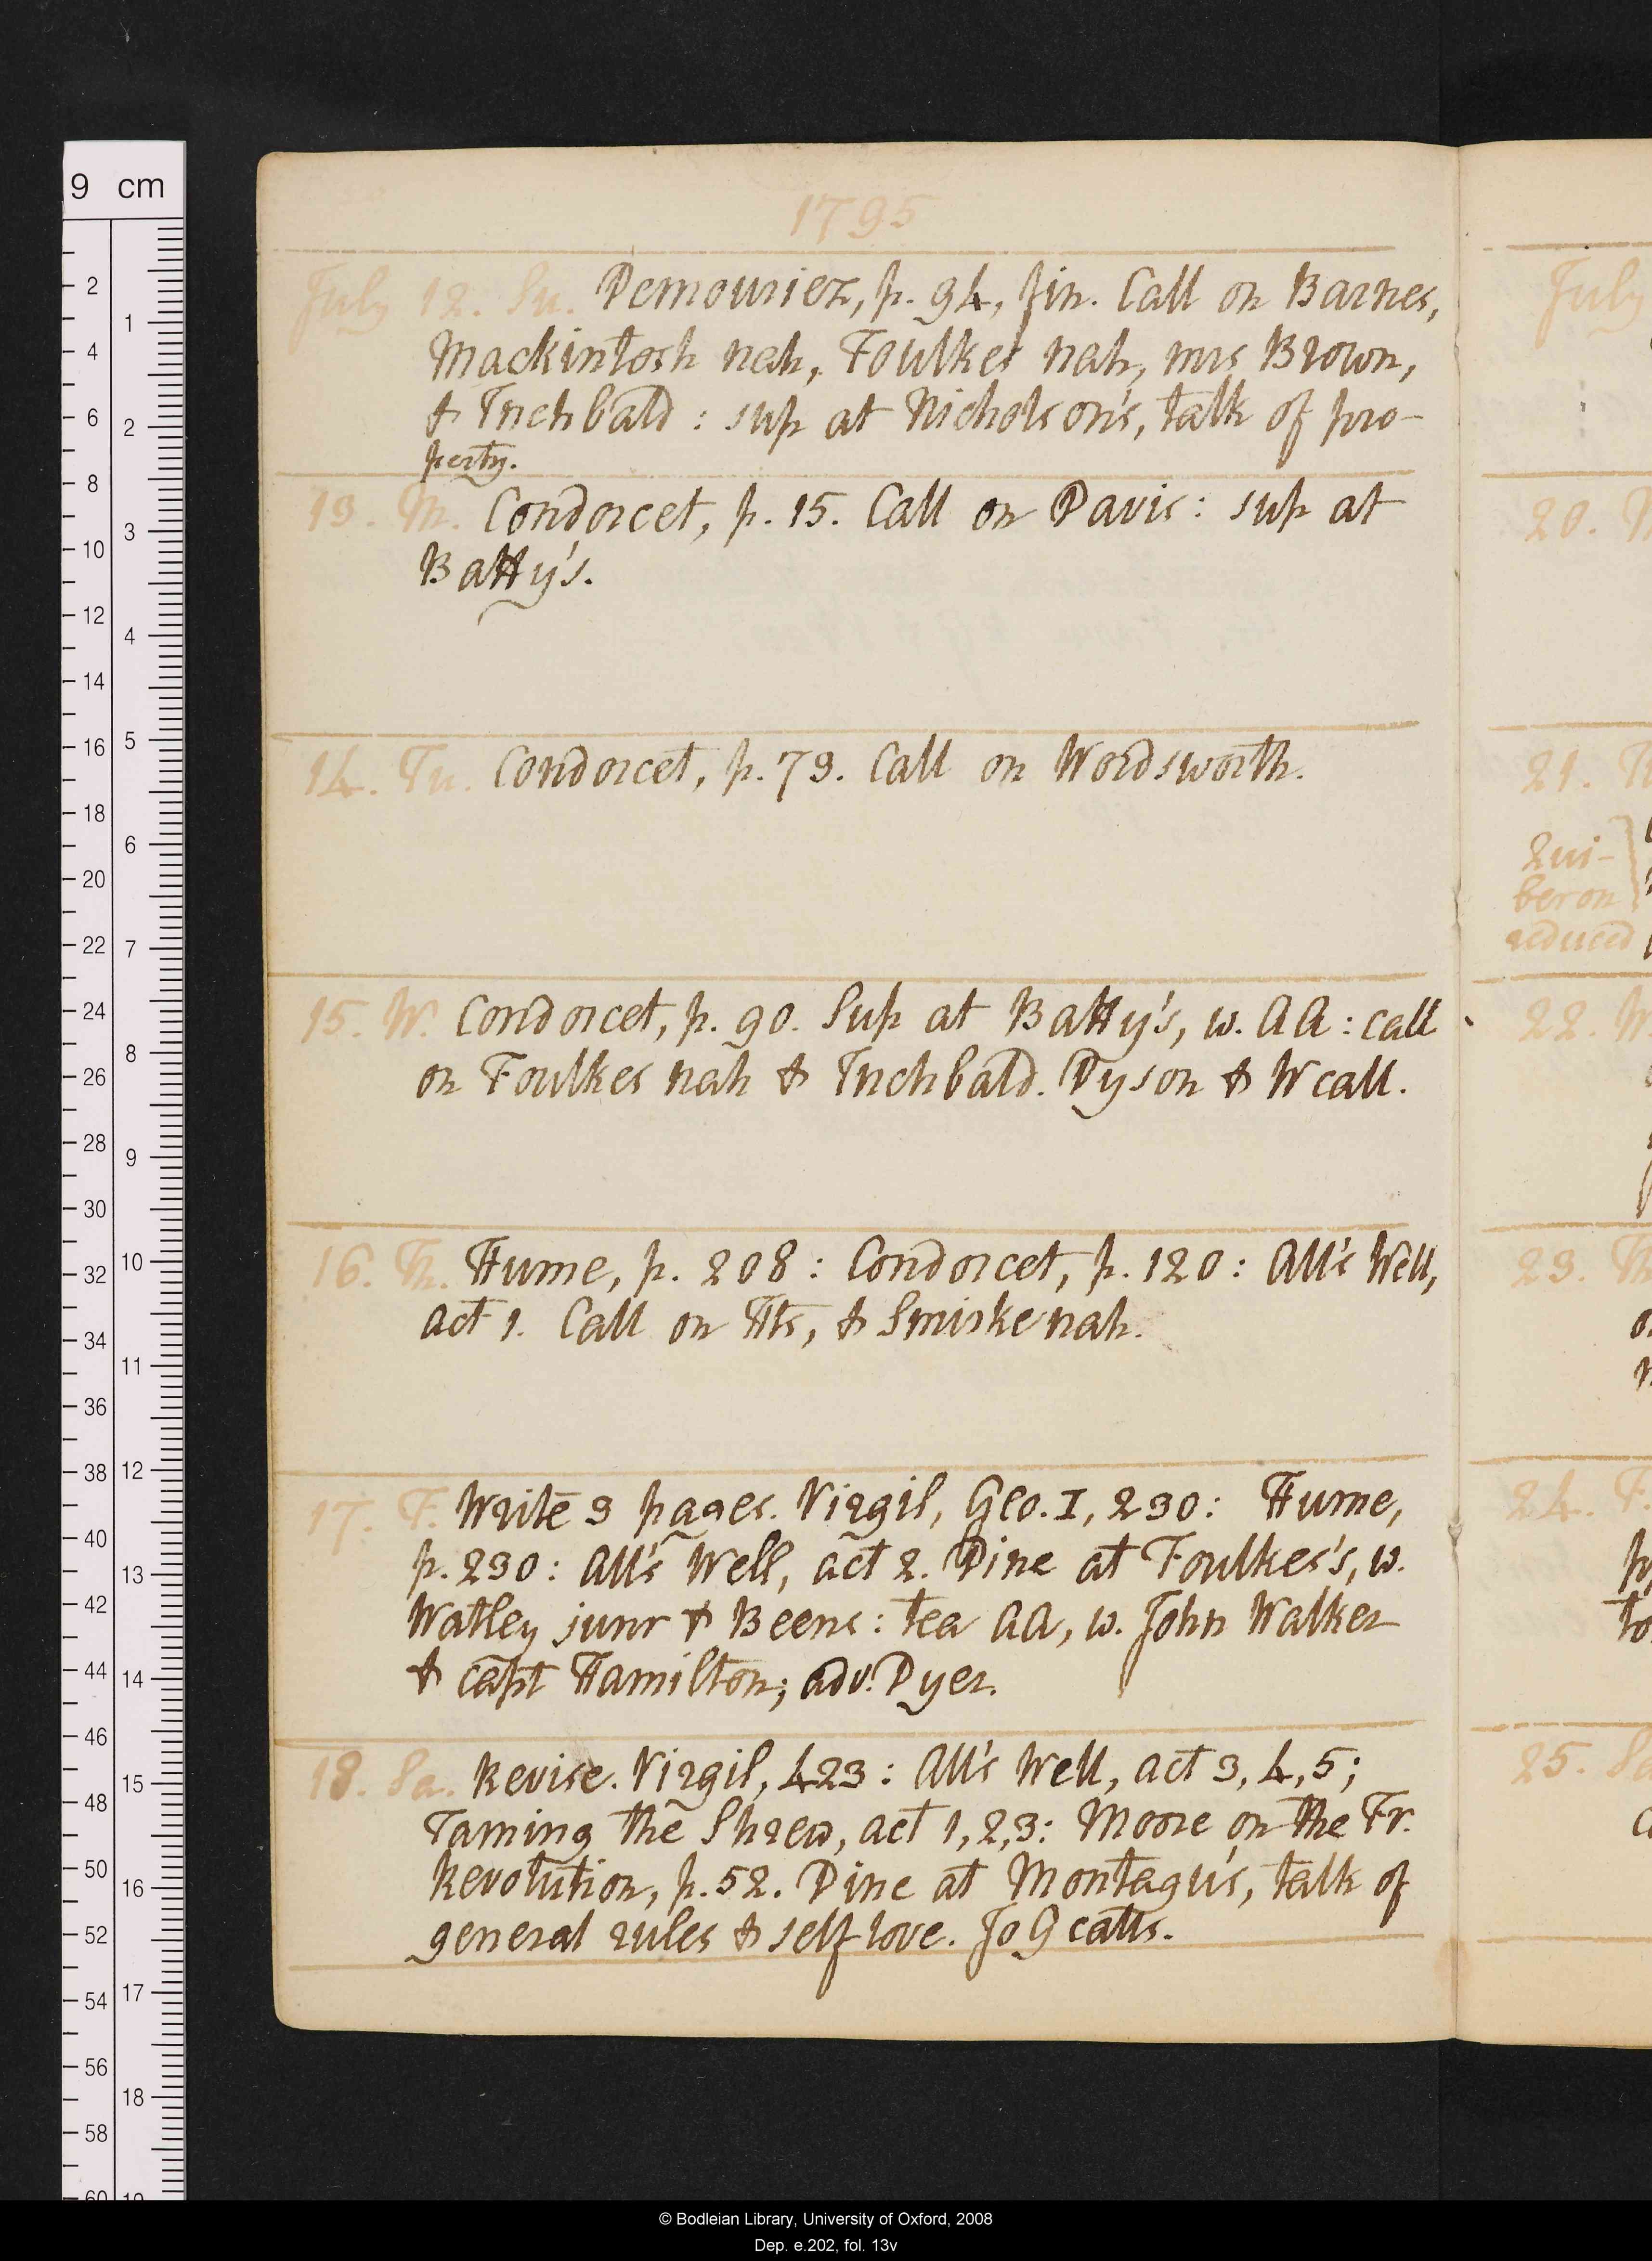 1795
July 12. Su. Demouriez, p. 94, fin. Call on Barnes,
Mackintosh nah, Foulkes nah, mrs Brown,
& Inchbald: sup at Nicholson's, talk of pro-
perty.
13. M. Condorcet, p. 15. Call on Davis: sup at
Batty's.
14. Tu. Condorcet, p. 79. Call on Wordsworth.
15. W. Condorcet, p. 90. Sup at Batty's, w. AA: call
on Foulkes nah & Inchbald. Dyson & W call.
16. Th. Hume, p. 208: Condorcet, p. 120: All's Well,
act 1. Call on Hts, & Smirke nah.
17. F. Write 3 pages. Virgil, Geo. I, 230: Hume,
p. 230: All's Well, act 2. Dine at Foulkes's, w.
Watley junr & Beens: tea AA, w. John Walker
& capt Hamilton; adv. Dyer.
18. Sa. Revise. Virgil, 423: All's Well, act 3, 4, 5;
Taming the Shrew, act 1, 2, 3: Moore on the Fr.
Revolution, p. 52. Dine at Montagu's, talk of
general rules & self love. Jo G calls.
July
20.
21.
Qui-
beron
reduced
22.
23.
24.
25.
9 cm
2 4 6 8 10 12 14 16 18 20 22 24 26 28 30 32 34 36 38 40 42 44 46 48 50 52 54 56 58 60
1 2 3 4 5 6 7 8 9 10 11 12 13 14 15 16 17 18
© Bodleian Library, University of Oxford, 2008
Dep. e.202, fol. 13v